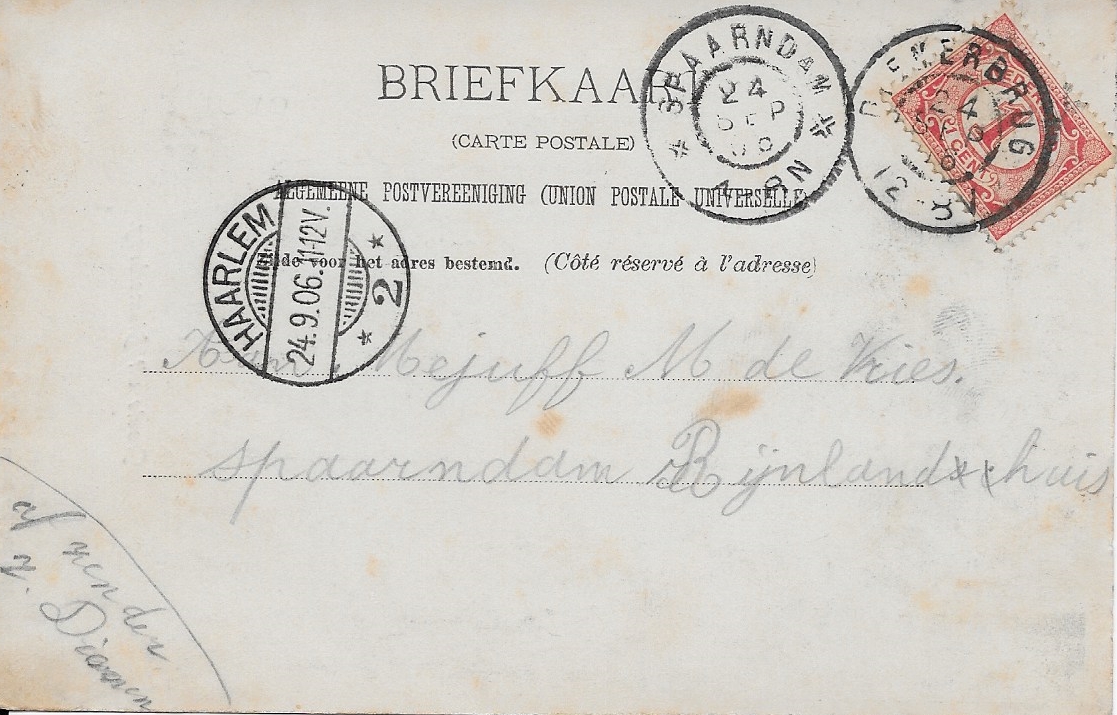 BRIEFKAART
(CARTE POSTALE)
ALGEMEENE POSTVEREENIGING (UNION POSTALE UNIVERSELLE)
Zijde voor het adres bestemd. (Côté réservé à l'adresse)
SPAARNDAM
24
SEP
06
4-8N
12-8V
24
SEP
NED
1
CENT
HAARLEM
24.9.06.11-12V.
2
Aan Mejuff M de Vries.
Spaarndam Rijnlandxxhuis
afzender